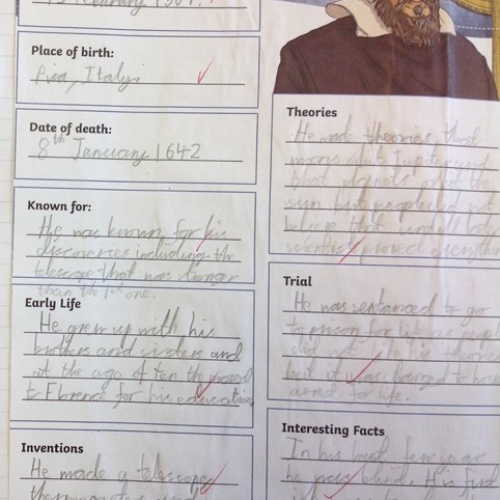 February 1564.
Place of birth:
Pisa, Italy.
Date of death:
8th January 1642
Known for:
He was known for his
discoveries including the
telescope that was stronger
than the 1st one.
Early Life
He grew up with his
brothers and sisters and
at the age of ten the moved
to Florence for his education
Inventions
He made a telescope
Theories
He made theories that
moons orbit Jupiter and
that planets orbit the
sun but people did not
believe that until
scientist proved everything
Trial
He was sentanced to go
to prison for life as people
did not like his theories
but it was changed to house
arrest for life.
Interesting Facts
In his last few years
he was blind. His first